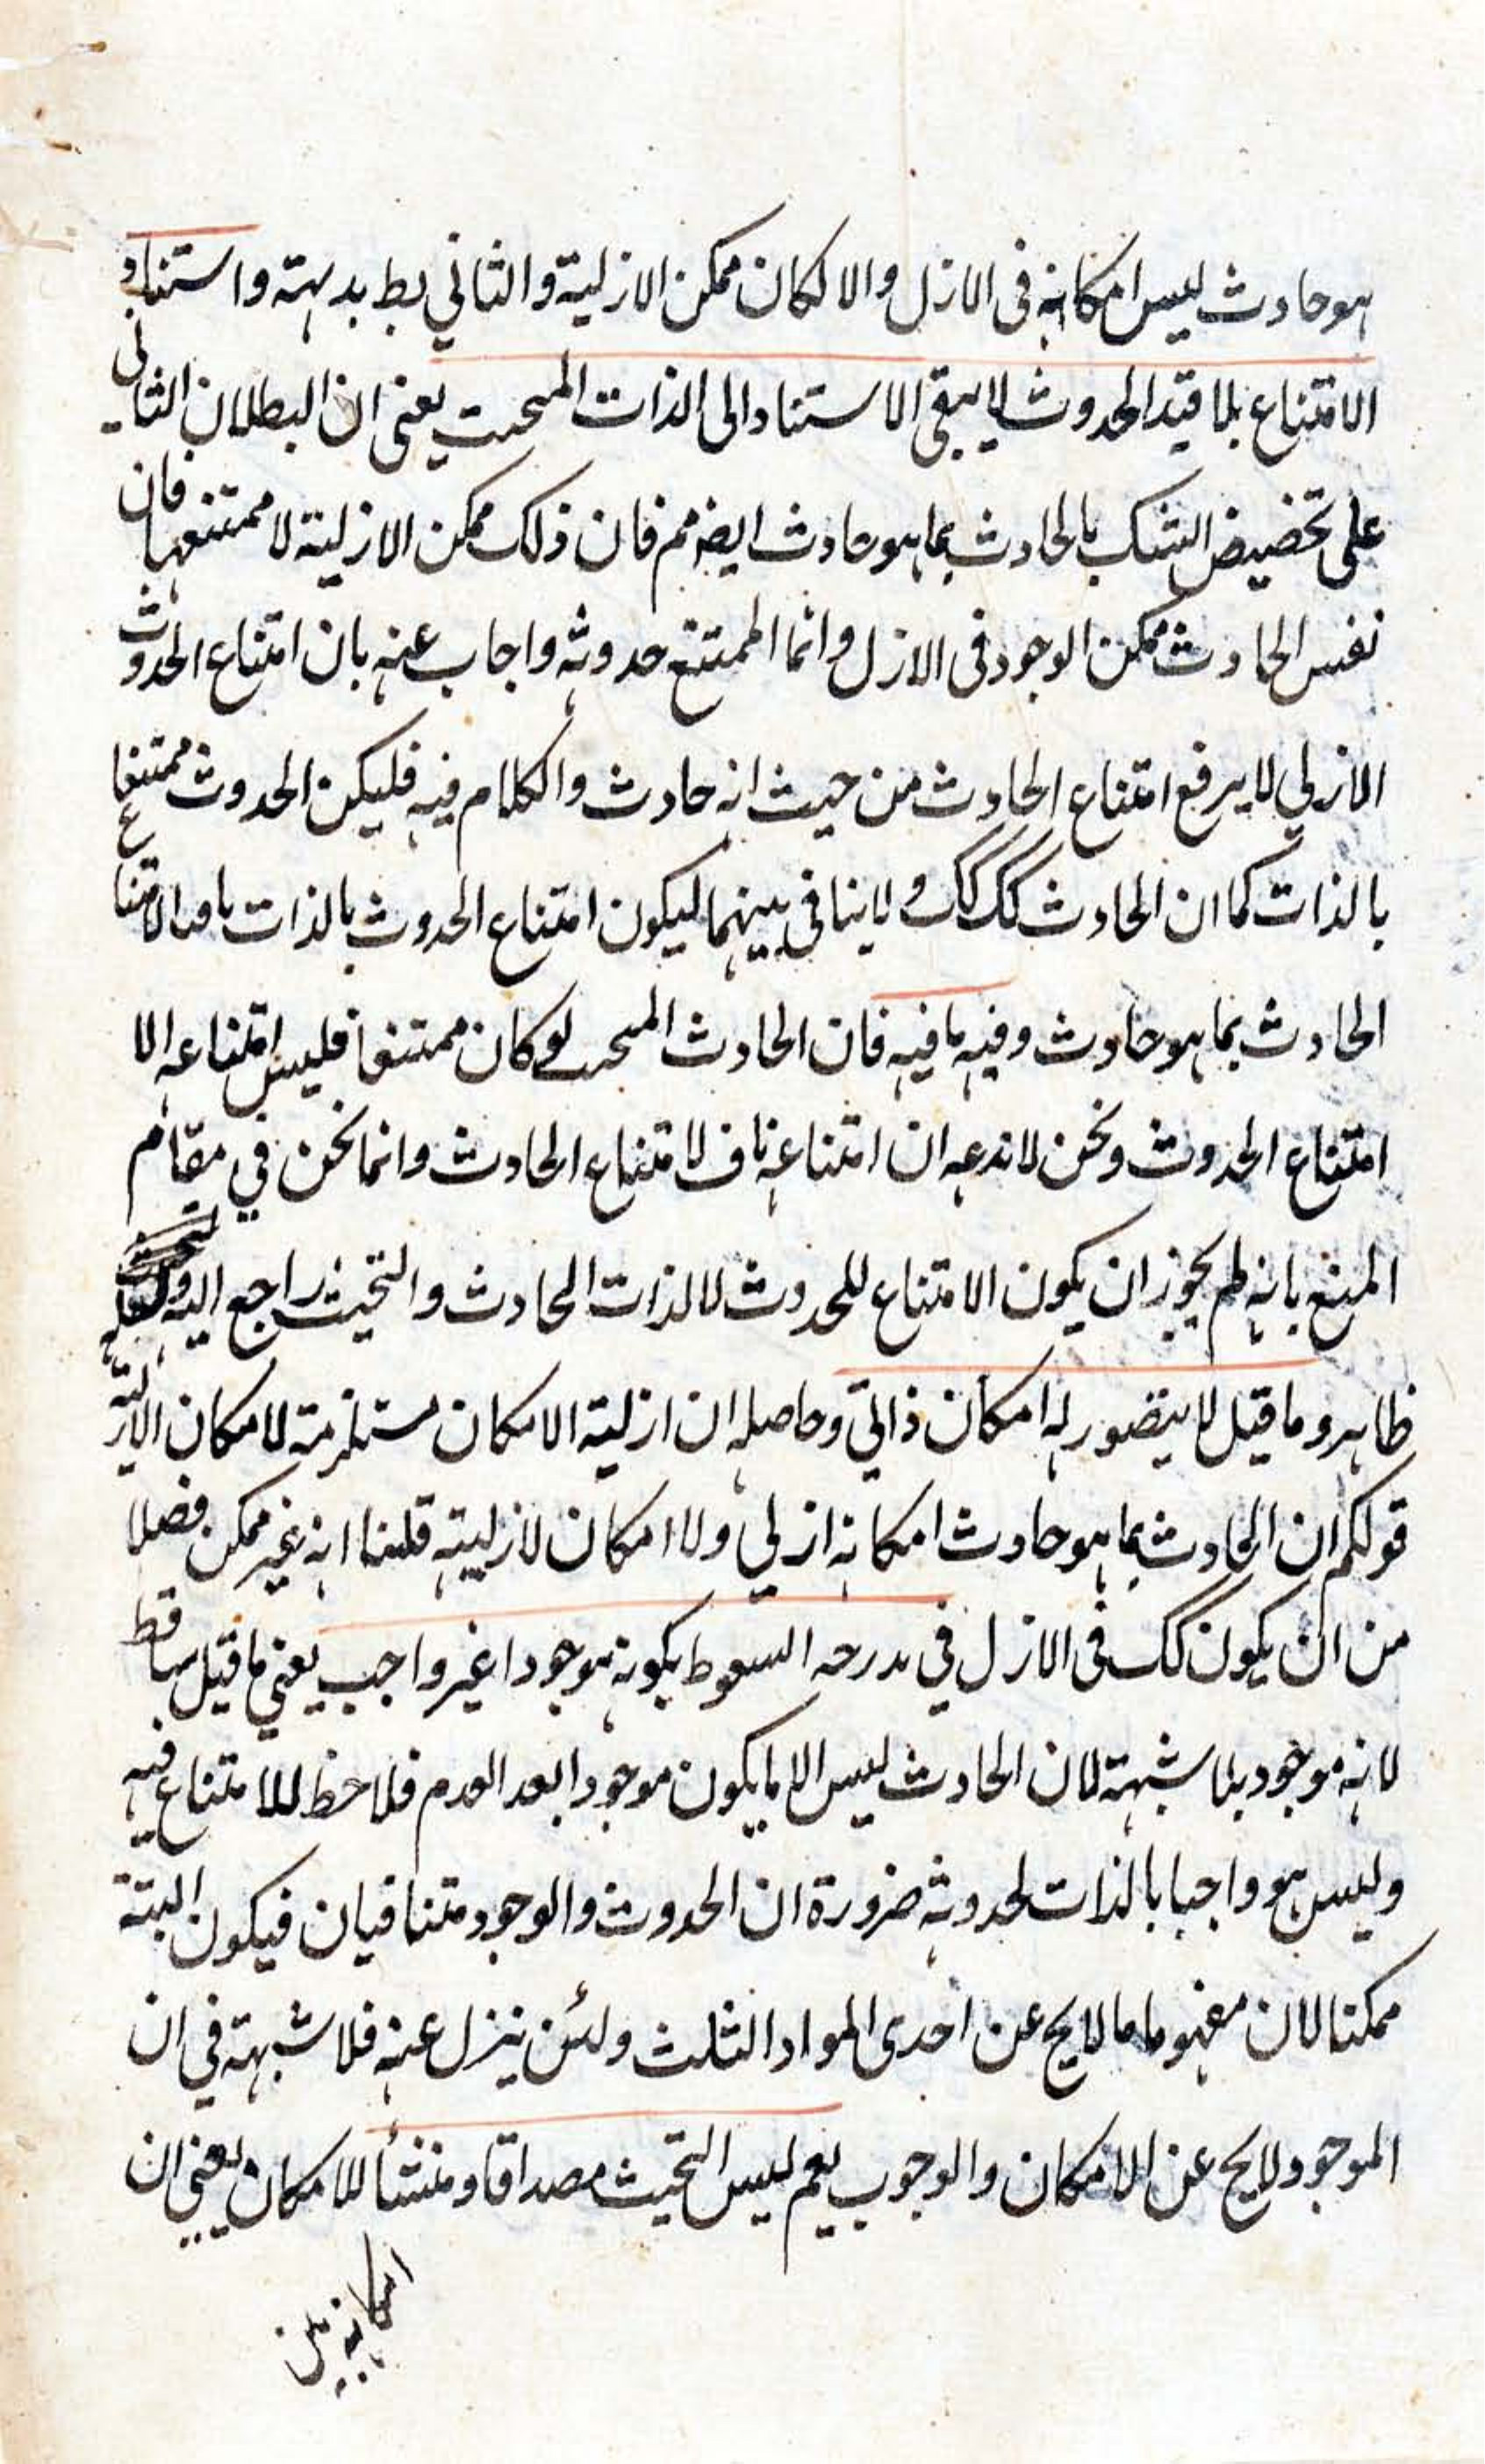 هو حادث ليس امكانه فى الازل والا لكان ممكن الازلية والثاني بط بديهة واستناد
الامتناع بلا قيد الحدوث لا يبقى الاستناد الى الذات المحيث يعنى ان البطلان الثانى
على تخصيص الشك بالحادث بما هو حادث ايضا مم فان ذلك ممكن الازلية لا ممتنعها فان
نفس الحادث ممكن الوجود فى الازل وانما الممتنع حدوثه واجاب عنه بان امتناع الحدوث
الازلي لا يرفع امتناع الحادث من حيث انه حادث والكلام فيه فليكن الحدوث ممتنعا
بالذات كما ان الحادث كك ولا ينافى بينهما ليكون امتناع الحدوث بالذات الامتناع
الحادث بما هو حادث وفيه ما فيه فان الحادث المحيث لو كان ممتنعا فليس امتناعه الا
امتناع الحدوث ونحن لا ندعه ان امتناعه ناف لامتناع الحادث وانما نحن في مقام
المنع بانه لم يجوز ان يكون الامتناع للحدوث لا لذات الحادث والتحيث راجع اليه
ظاهر وما قيل لا يتصور له امكان ذاتي وحاصله ان ازلية الامكان مستلزمة لامكان الازلية
قولكم ان الحادث بما هو حادث امكانه ازلي ولا امكان لازليته قلنا انه غير ممكن فضلا
من ان يكون كك فى الازل في درجه السقوط بكونه موجودا غير واجب يعني ما قيل ساقط
لانه موجود بلا شبهة لان الحادث ليس الا ما يكون موجودا بعد العدم فلا حظ للامتناع فيه
وليس هو واجبا بالذات لحدوثه ضرورة ان الحدوث والوجود متنافيان فيكون البتة
ممكنا لان مفهوما ما لا يخ عن احدى المواد الثلث ولئن ينزل عنه فلا شبهة في ان
الموجود لا يخ عن الامكان والوجوب نعم ليس التحيث مصداقا ومنشأ للامكان يعني ان
امكانه من